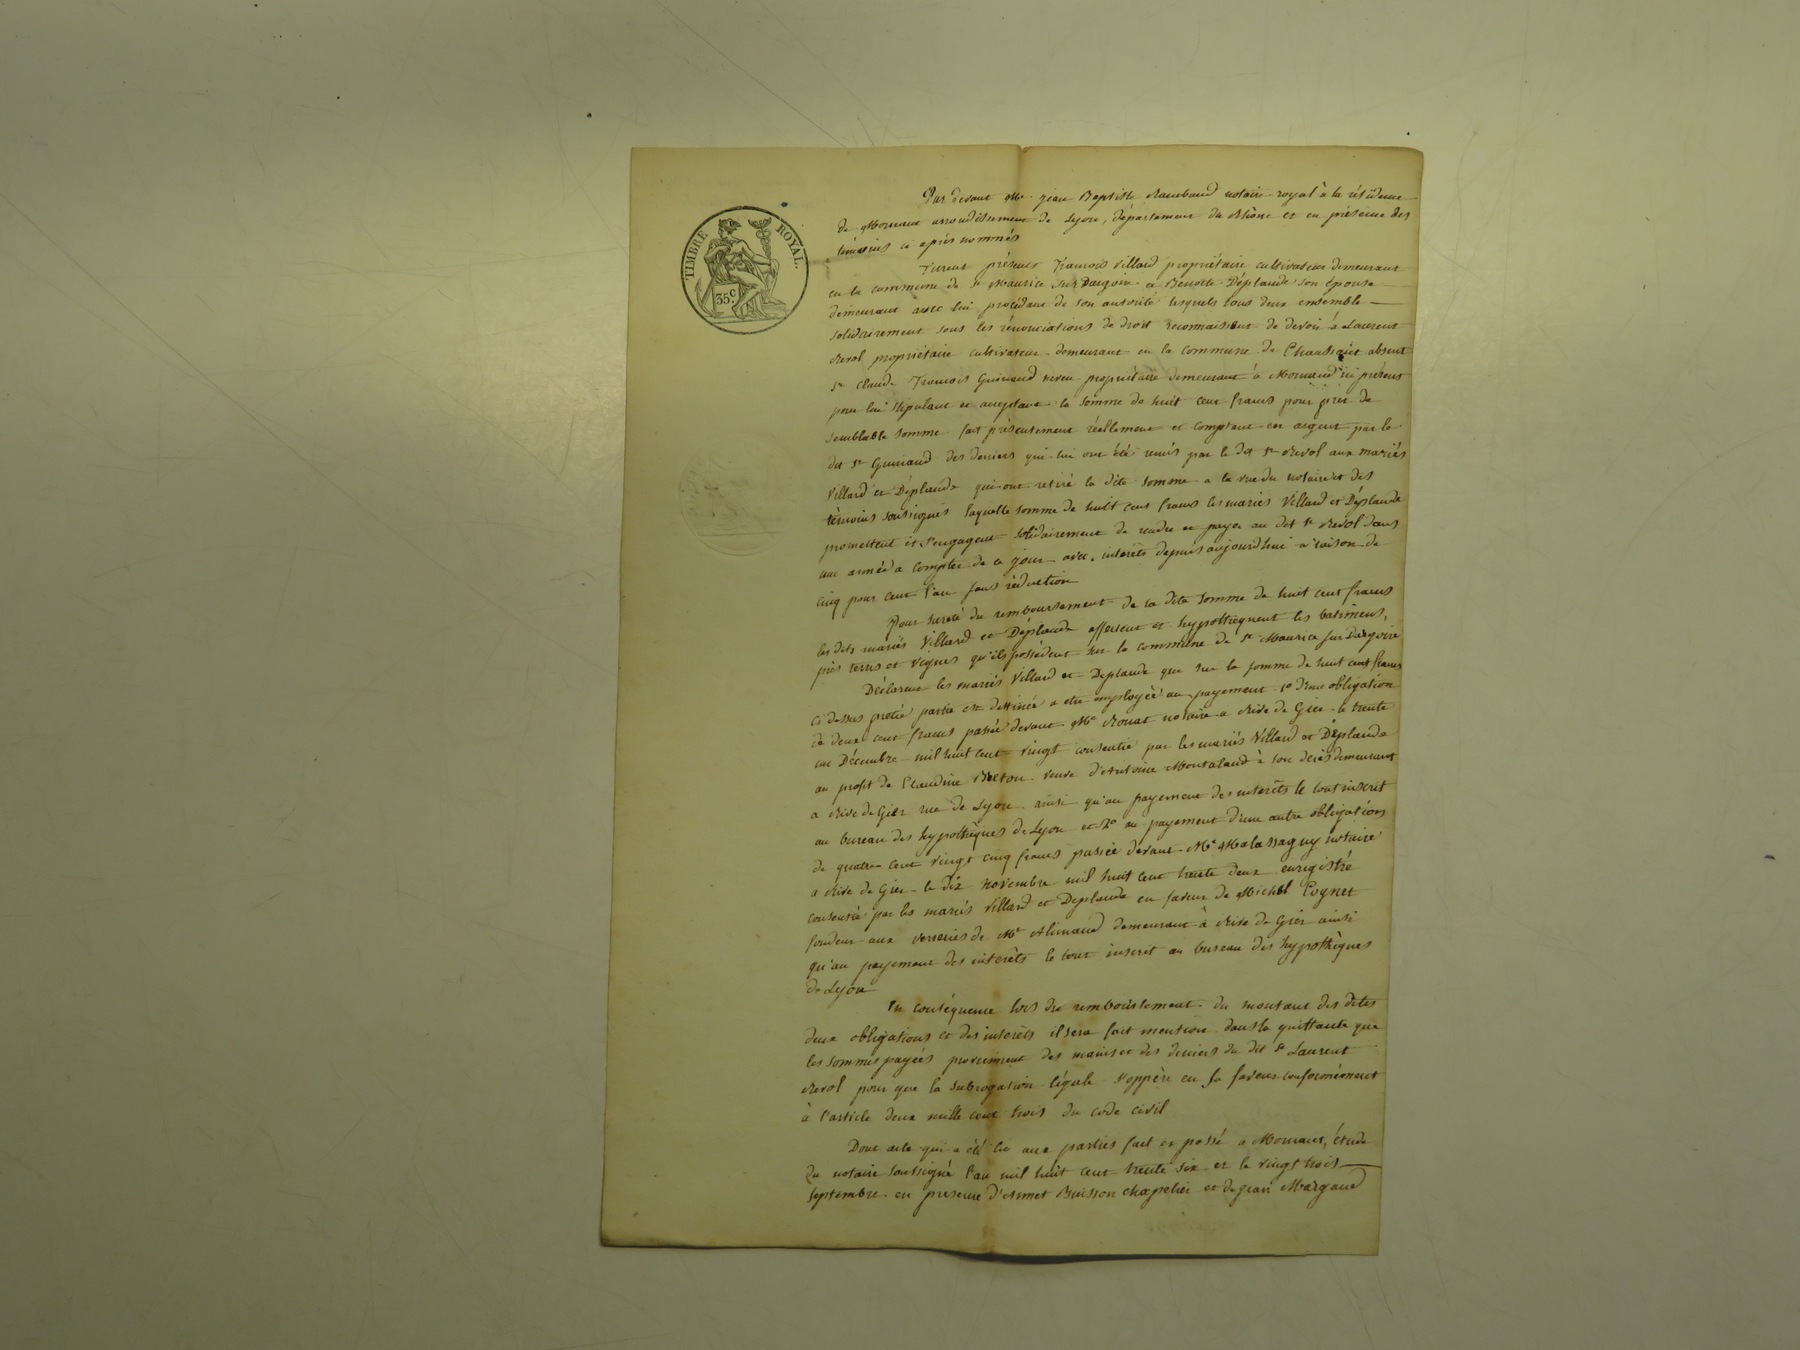 TIMBRE ROYAL.
35 c
Par devant Me jean Baptiste Raimbaud notaire royal à la résidence
de Mornant arrondissement de Lyon, département du Rhône et en présence des
témoins ci après nommés
Furent présents François Villard propriétaire cultivateur demeurant
en la commune de St Maurice sur Dargoire et Benoite Déplaude son épouse
demeurant avec lui procédant de son autorité lesquels tous deux ensemble
solidairement sous les rénonciations de droit reconnaissent de devoir à Laurent
Revol propriétaire cultivateur demeurant en la commune de Chaussant absent
Sr Claude François Guinand neveu propriétaire demeurant à Mornant ici présent
pour lui stipulant et acceptant la somme de huit cent francs pour prêt de
semblable somme fait présentement réellement et comptant en argent par le
dit Sr Guinand des deniers qui lui ont été remis par le dit Sr Revol aux mariés
Villard et Déplaude qui ont retiré la dite somme a la vue du notaire et des
témoins soussignés laquelle somme de huit cent francs les mariés Villard et Déplaude
promettent et s'engagent solidairement de rendre et payer au dit Sr Revol dans
une année a compter de ce jour avec intérêts depuis aujourd'hui a raison de
cinq pour cent l'an sans réduction
Pour sureté du remboursement de la dite somme de huit cent francs
les dits mariés Villard et Déplaude affectent et hypothèquent les batimens,
prés terres et vignes qu'ils possèdent sur la commune de St Maurice sur Dargoire
Déclarent les mariés Villard et Déplaude que sur la somme de huit cent francs
ci dessus pretée partie est destinée a etre employée au payement 1o d'une obligation
de deux cent francs passée devant Me Rouat notaire a Rive de Gier le trente
un Décembre mil huit cent vingt consentie par les mariés Villard et Déplaude
au profit de Claudine Breton veuve d'Antoine Montaland à son décès demeurant
a Rive de Gier rue de Lyon ainsi qu'au payement des intérêts le tout inscrit
au bureau des hypothèques de Lyon et 2o au payement d'une autre obligation
de quatre cent vingt cinq francs passée devant Me Malassagny notaire
a Rive de Gier le dix novembre mil huit cent trente deux enregistré
consentie par les mariés Villard et Déplaude en faveur de Michel Cognet
fondeur aux verreries de Mr Alimand demeurant à Rive de Gier ainsi
qu'au payement des intérêts le tout inscrit au bureau des hypothèques
de Lyon
En conséquence lors du remboursement du montant des dites
deux obligations et des intérêts il sera fait mention dans la quittance que
les sommes payées proviennent des mains et des deniers du dit Sr Laurent
Revol pour que la subrogation légale s'oppère en sa faveur conformément
à l'article deux mille cent trois du code civil
Dont acte qui a été lu aux parties fait et passé a Mornant, étude
du notaire soussigné l'an mil huit cent trente six et le vingt trois
septembre en présence d'Aimet Buisson chapelier et de jean Margand